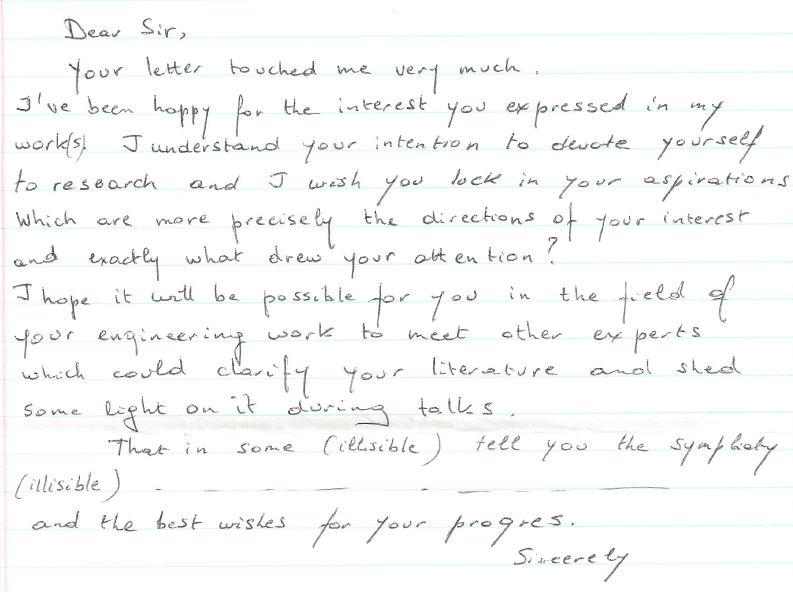 Dear Sir,
Your letter touched me very much.
I've been happy for the interest you expressed in my
work(s) I understand your intention to devote yourself
to research and I wish you lock in your aspirations
Which are more precisely the directions of your interest
and exactly what drew your attention?
I hope it will be possible for you in the field of
your engineering work to meet other experts
which could clarify your literature and shed
some light on it during talks.
That in some (illisible) tell you the
(illisible)
and the best wishes for your progres.
Sincerely